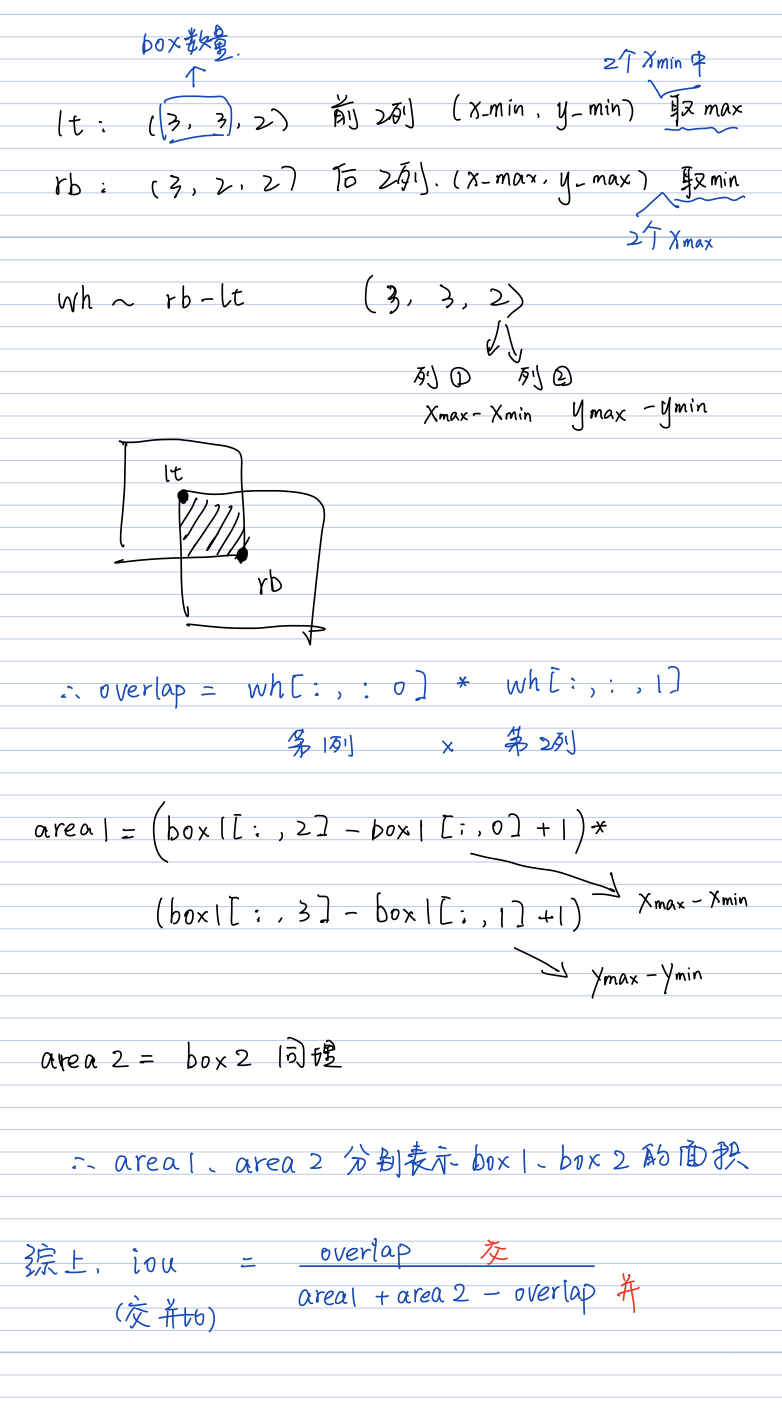 box数量.
2个 xmin 中
lt: (3, 3, 2) 前 2列 (x_min, y_min) 取 max
rb: (3, 2, 2) 后 2列. (x_max, y_max) 取min
2个 xmax
wh ~ rb-lt (3, 3, 2)
列 ① 列 ②
xmax - xmin ymax - ymin
lt
rb
∴ overlap = wh[:, : 0] * wh[:, :, 1]
第 1列 × 第 2列
area1 = (box1[:, 2] - box1[:, 0] + 1) *
(box1[:, 3] - box1[:, 1] + 1) xmax - xmin
ymax - ymin
area 2 = box 2 同理
∴ area1、area 2 分别表示 box1、box 2 的面积
综上, iou = overlap 交
area1 + area 2 - overlap 并
(交并比)